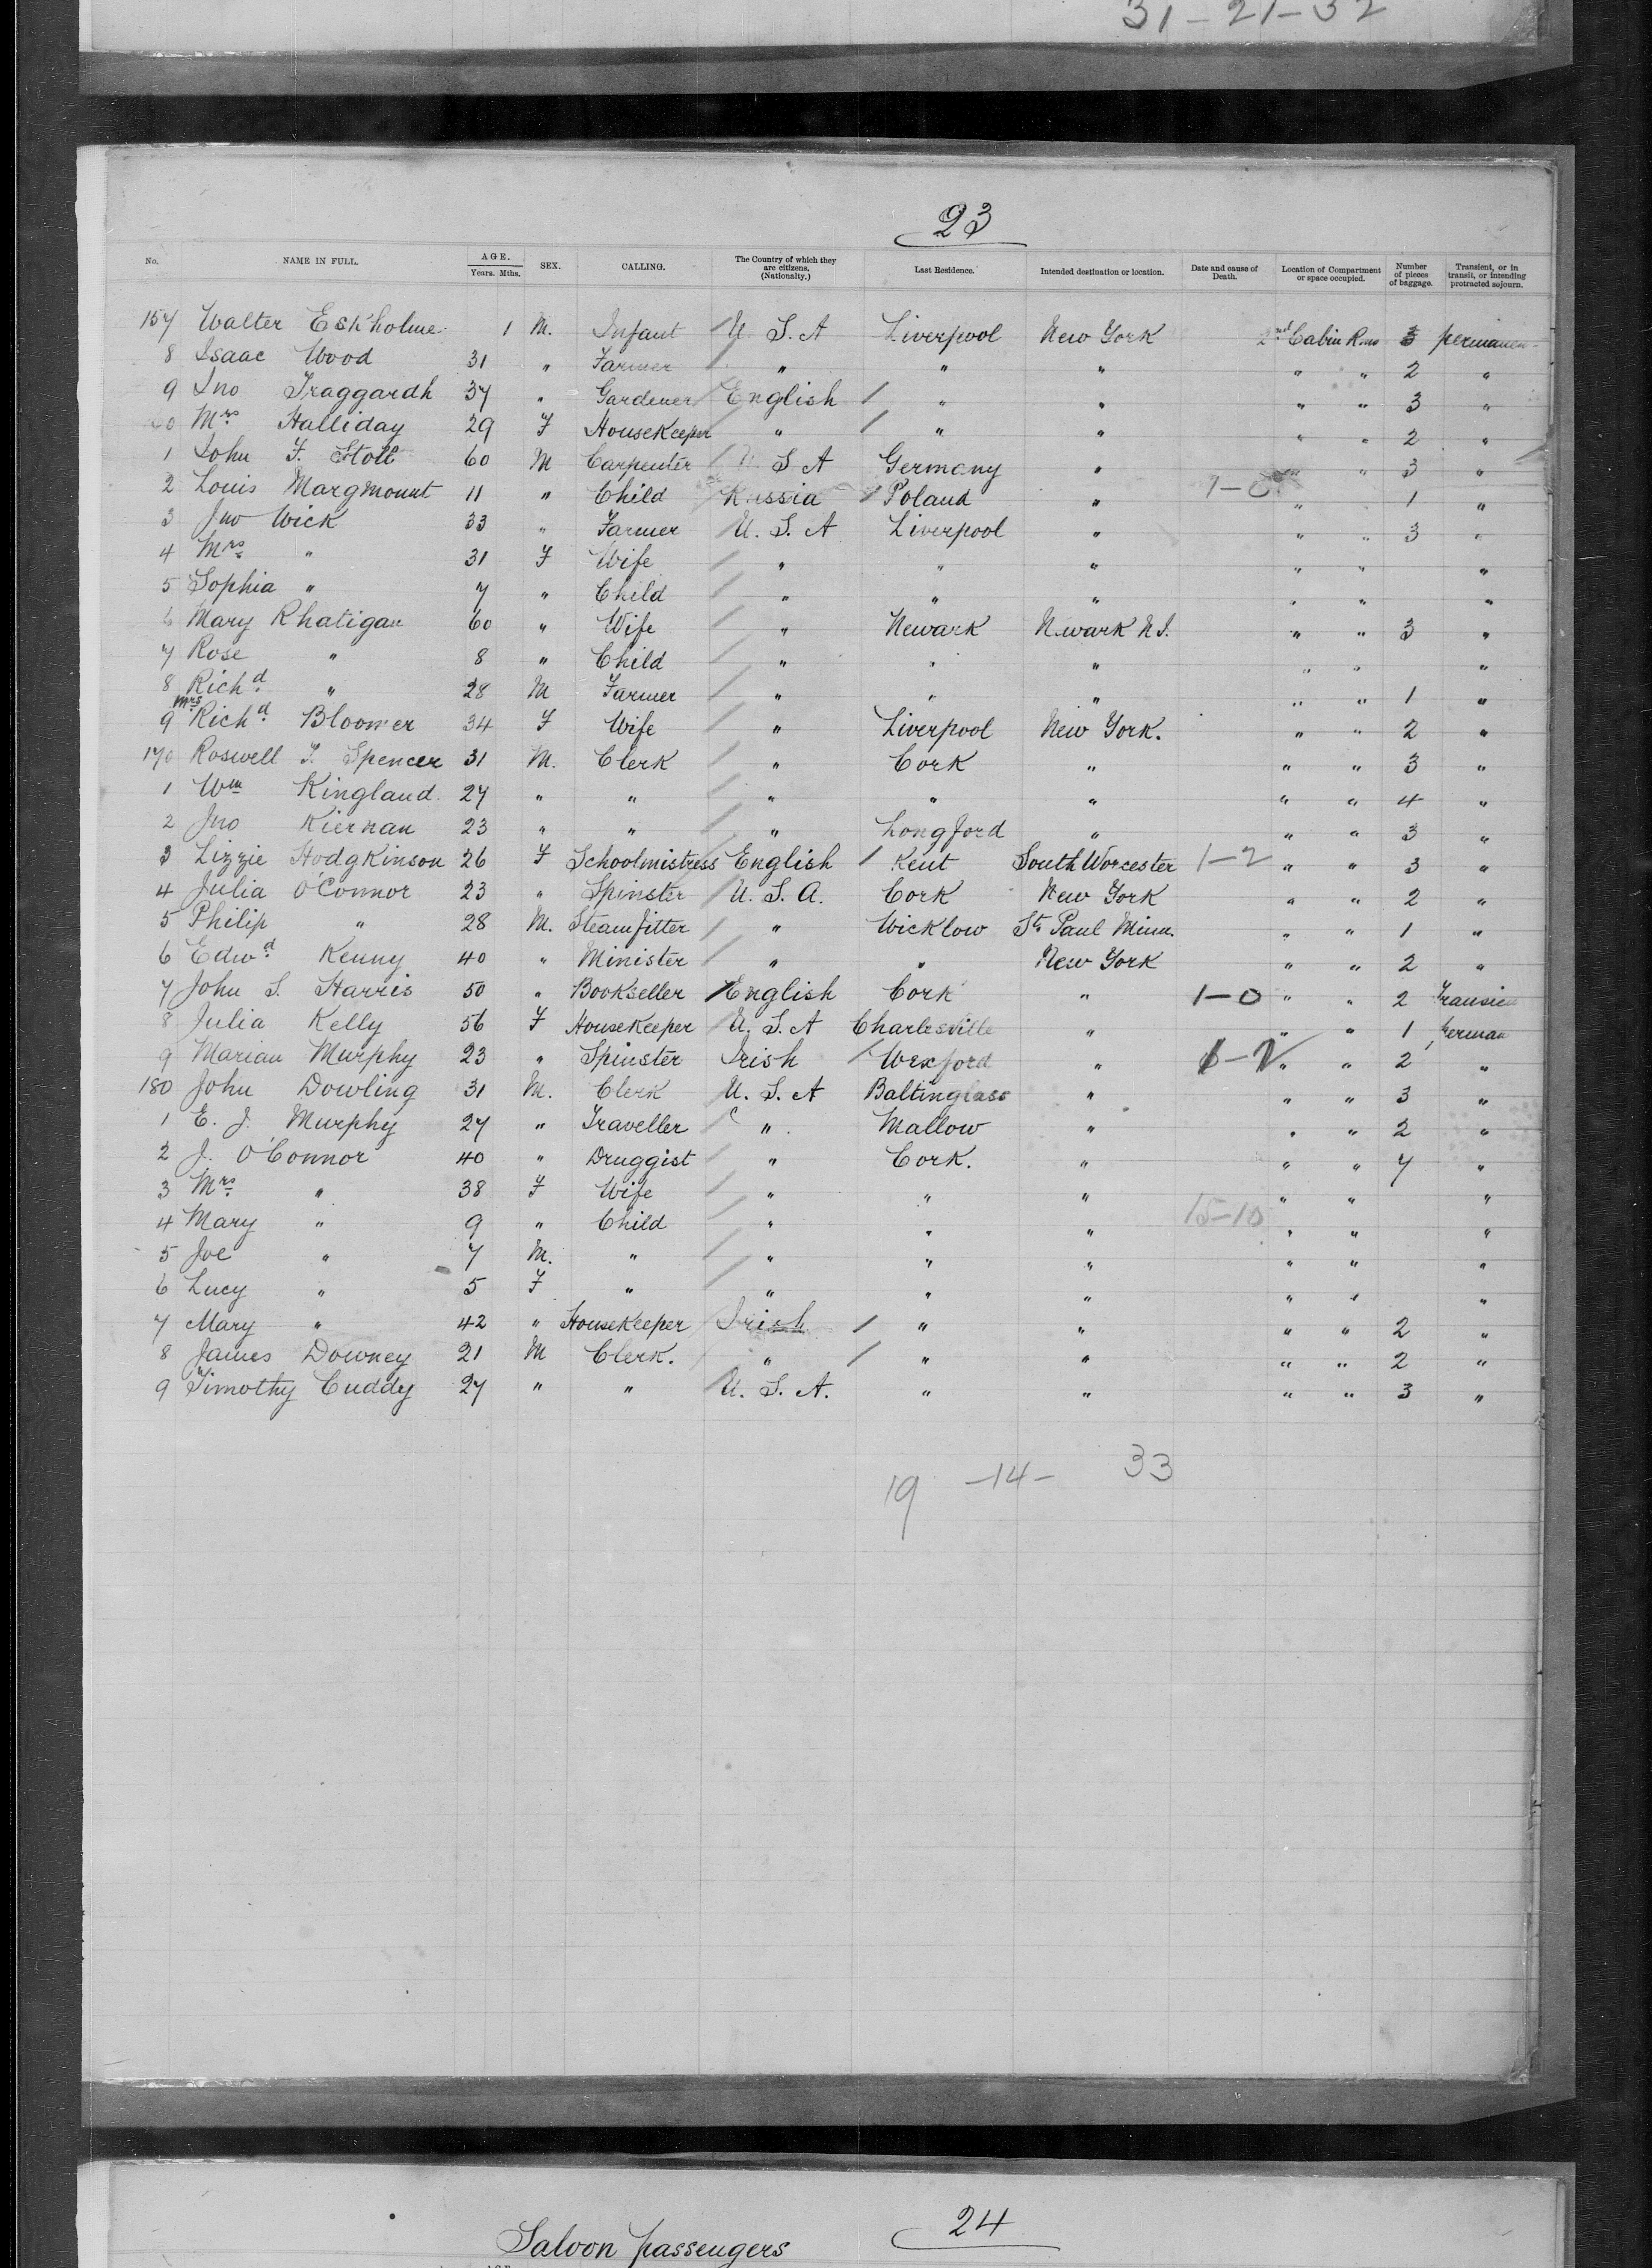 31-21-32
23
No. NAME IN FULL. AGE. Years. Mths. SEX. CALLING. The Country of which they are citizens. (Nationalty.) Last Residence. Intended destination or location. Date and cause of Death. Location of Compartment or space occupied. Number of pieces of baggage. Transient, or in transit, or intending protracted sojourn.
157 Walter Eskholme 1 M. Infant U.S.A Liverpool New York 2nd Cabin Rms 3 permanen
8 Isaac Wood 31 " Farmer " " " " " 2 "
9 Jno Traggardh 37 " Gardener English " " " " 3 "
60 Mrs Halliday 29 F Housekeeper " " " " " 2 "
1 John F. Stoll 60 M Carpenter U S A Germany " " 3 "
2 Louis Margmount 11 " Child Russia Poland " 1-0 " 1 "
3 Jno Wick 33 " Farmer U.S.A Liverpool " " " 3 "
4 Mrs " 31 F Wife " " " " " "
5 Sophia " 7 " Child " " " " " "
6 Mary Rhatigan 60 " Wife " Newark Newark N J. " " 3 "
7 Rose " 8 " Child " " " " " "
8 Richd " 28 M Farmer " " " " " 1 "
9 Mrs Richd Bloomer 34 F Wife " Liverpool New York. " " 2 "
170 Roswell T. Spencer 31 M. Clerk " Cork " " " 3 "
1 Wm Kingland 27 " " " " " " " 4 "
2 Jno Kiernan 23 " " " Longford " " " 3 "
3 Lizzie Hodgkinson 26 F Schoolmistress English Kent South Worcester 1-2 " " 3 "
4 Julia O'Connor 23 " Spinster U.S.A. Cork New York " " 2 "
5 Philip " 28 M. Steamfitter " Wicklow St. Paul Minn. " " 1 "
6 Edwd Kenny 40 " Minister " " New York " " 2 "
7 John S. Harris 50 " Bookseller English Cork " 1-0 " " 2 Transien
8 Julia Kelly 56 F Housekeeper U.S.A Charlesville " " " 1 perman
9 Marian Murphy 23 " Spinster Irish Wexford " " " 2 "
180 John Dowling 31 M. Clerk U.S.A Baltinglass " " " 3 "
1 E. J. Murphy 27 " Traveller " Mallow " " " 2 "
2 J. O'Connor 40 " Druggist " Cork. " " " 7 "
3 Mrs " 38 F Wife " " " " " "
4 Mary " 9 " Child " " " 15-10 " " "
5 Joe " 7 M. " " " " " " "
6 Lucy " 5 F " " " " " " "
7 Mary " 42 " Housekeeper Irish " " " " 2 "
8 James Downey 21 M Clerk. " " " " " 2 "
9 Timothy Cuddy 27 " " U.S.A. " " " " 3 "
19 -14- 33
24
Saloon passengers